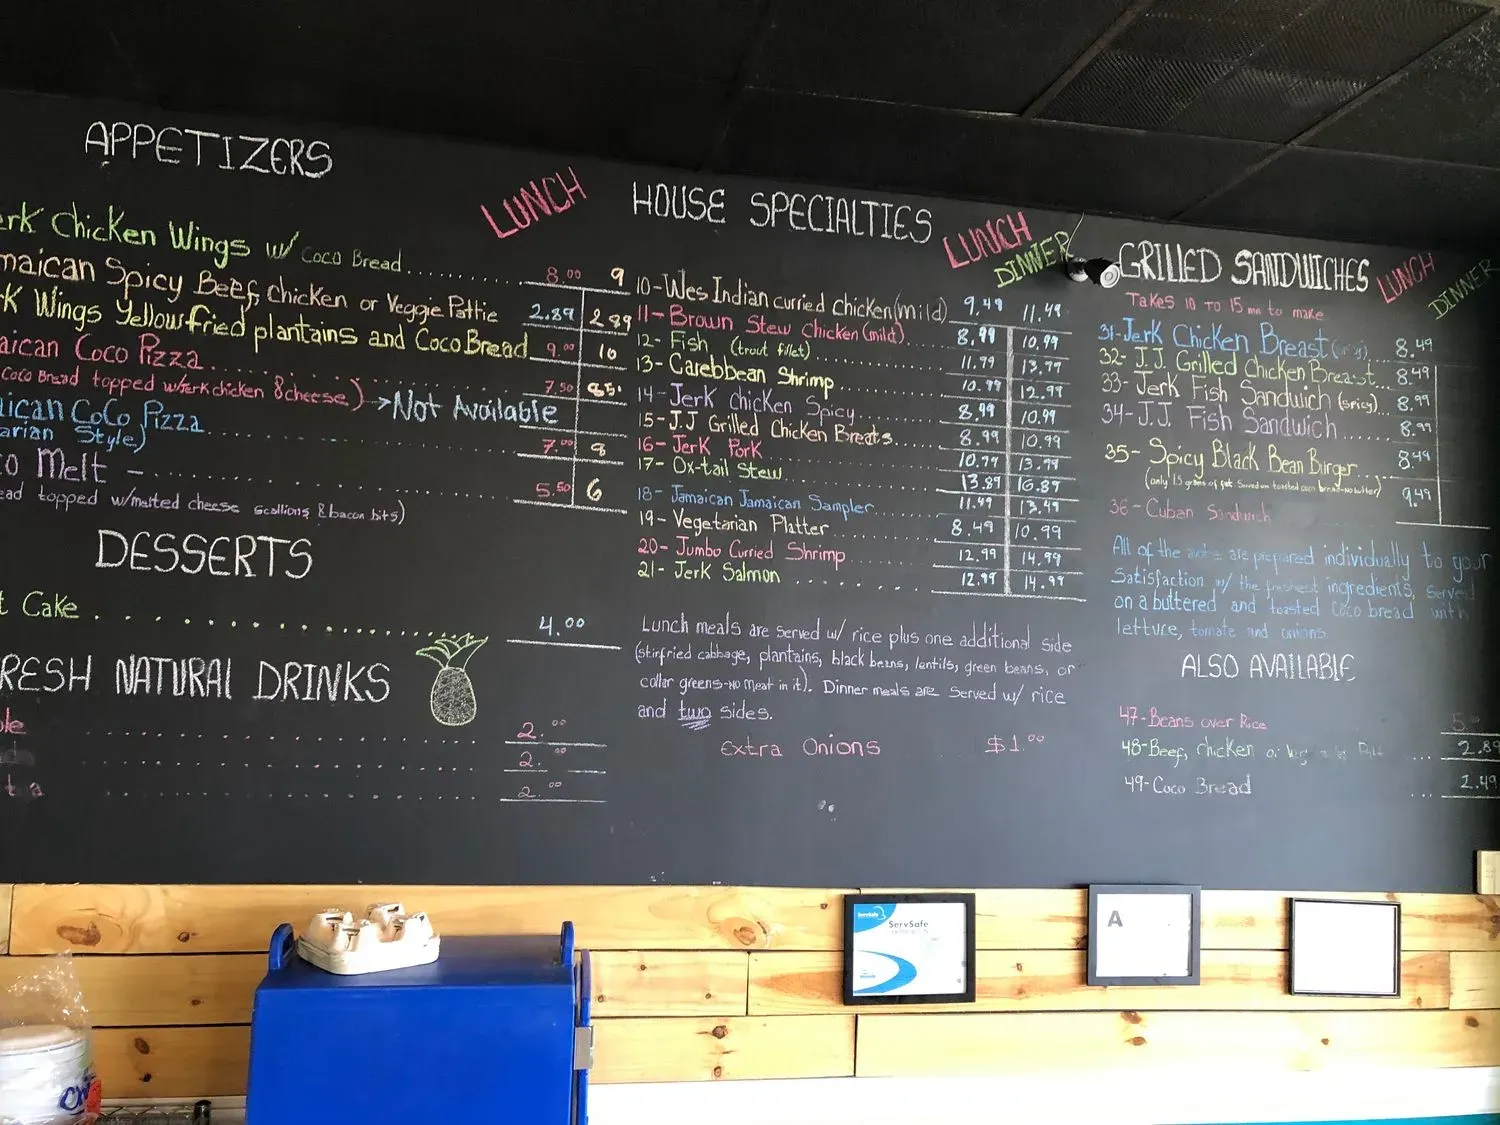 APPETIZERS
LUNCH
erk Chicken Wings w/ Coco Bread 8.00 9
maican Spicy Beef, Chicken or Veggie Pattie 2.89 2 89
k Wings Yellow fried plantains and Coco Bread 9.00 10
aican Coco Pizza 7.50
Coco Bread topped w/Jerk chicken & cheese) →Not Available
ican CoCo Pizza 7.00 8
arian Style)
o Melt - 5.50 6
ead topped w/melted cheese scallions & bacon bits)
DESSERTS
t Cake 4.00
RESH NATURAL DRINKS
le 2.00
2.00
t a 2.00
HOUSE SPECIALTIES
LUNCH DINNER
10-Wes Indian curried chicken (mild) 9.49 11.49
11-Brown Stew Chicken (mild) 8.99 10.99
12- Fish (trout fillet) 11.99 13.99
13- Carebbean Shrimp 10.99 12.99
14- Jerk Chicken Spicy 8.99 10.99
15- J.J Grilled Chicken Breats 8.99 10.99
16- Jerk Pork 10.99 13.99
17- Ox-tail Stew 13.89 16.89
18- Jamaican Jamaican Sampler 11.49 13.49
19- Vegetarian Platter 8.49 10.99
20- Jumbo Curried Shrimp 12.99 14.99
21- Jerk Salmon 12.99 14.99
Lunch meals are served w/ rice plus one additional side
(stirfried cabbage, plantains, black beans, lentils, green beans, or
collar greens-no meat in it). Dinner meals are served w/ rice
and two sides.
Extra Onions $1.00
GRILLED SANDWICHES
LUNCH DINNER
Takes 10 to 15 mn to make
31-Jerk Chicken Breast 8.49
32- J.J. Grilled Chicken Breast 8.49
33- Jerk Fish Sandwich (spicy) 8.99
34- J.J. Fish Sandwich 8.99
35- Spicy Black Bean Burger 8.49
(only 1.5 grams of fat Served on toasted coco bread-no butter) 9.49
36- Cuban Sandwich
All of the are prepared individually to your
Satisfaction w/ the freshest ingredients, served
on a buttered and toasted Coco bread with
lettuce, tomate and onions.
ALSO AVAILABLE
47-Beans over Rice 5.
48-Beef, chicken or 2.89
49-Coco Bread 2.49
ServSafe
ServSafe
A